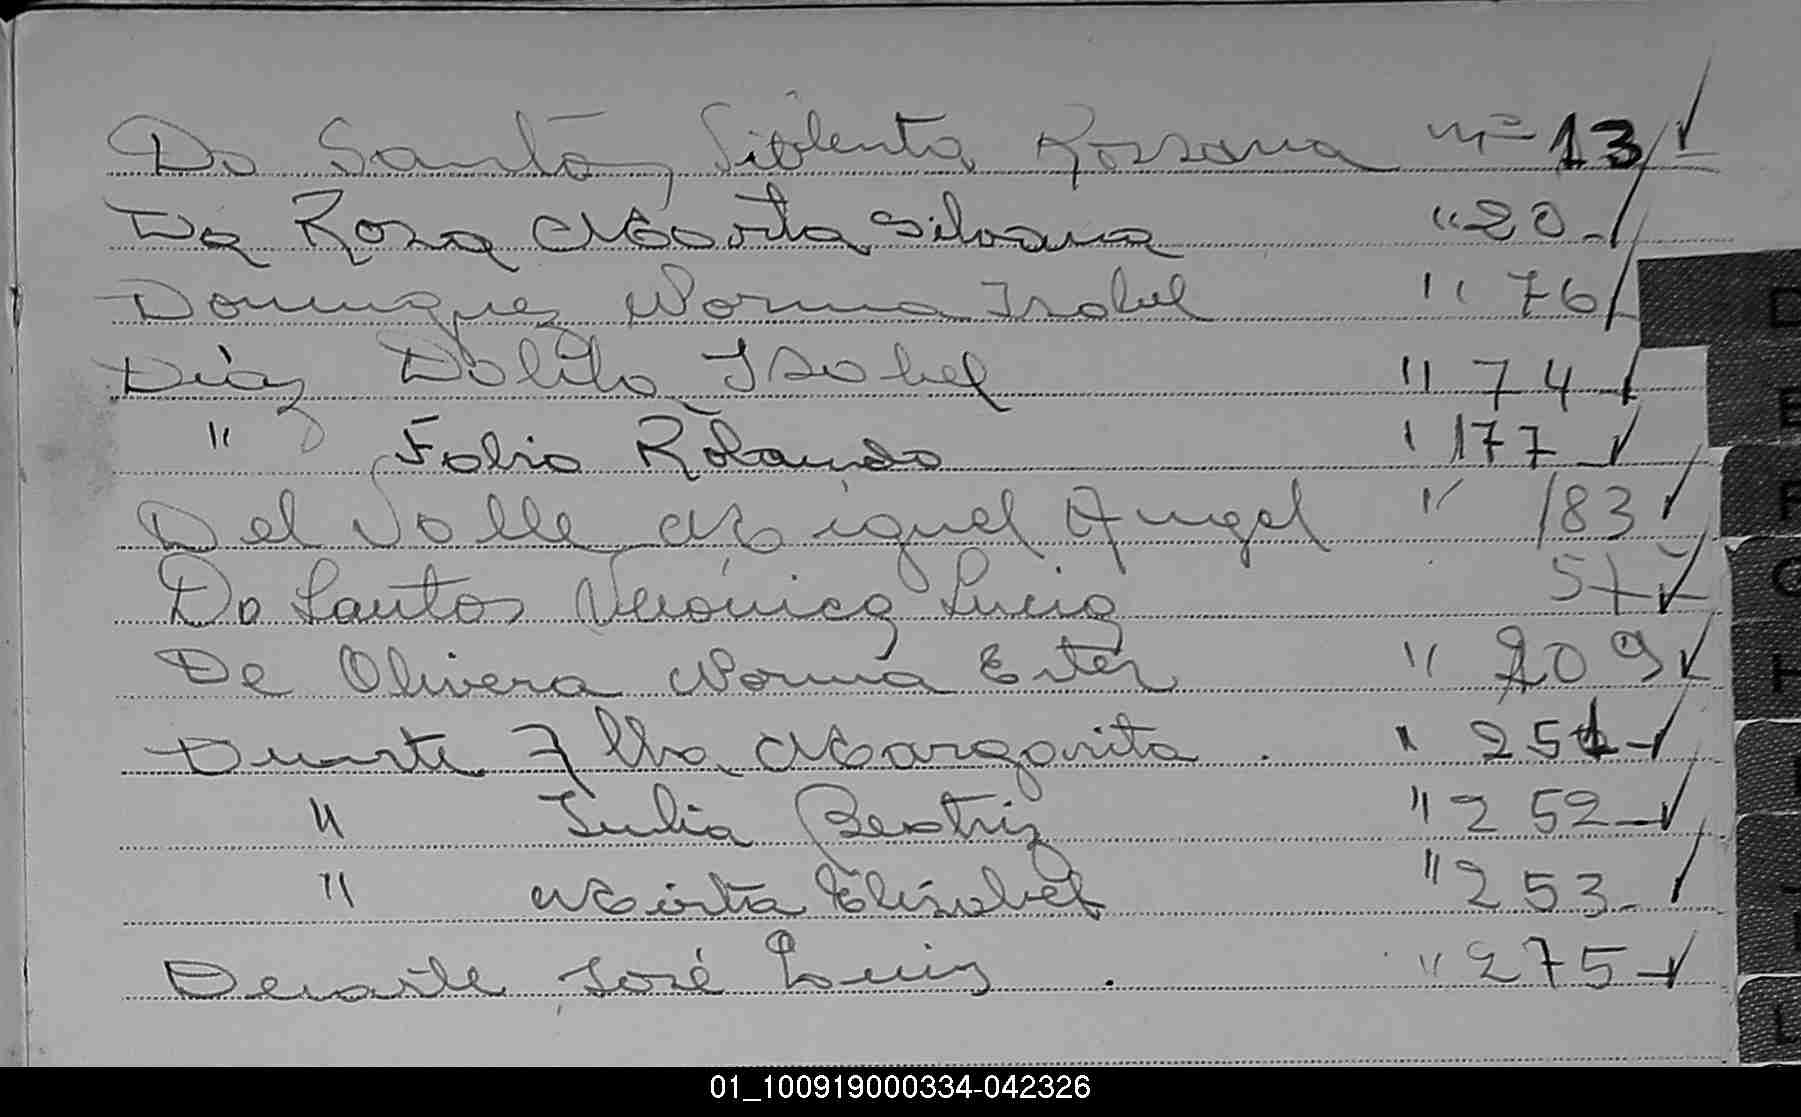 Do Santos, Rossana nº 13
Da Rosa Marta Silvana " 20
Dominguez Norma Isabel " 76
Díaz Isabel " 74
" Fabio Rolando " 177
Del Valle Miguel Angel " 183
Do Santos Verónica Lucia 57
De Olivera Norma Ester " 209
Duarte Alba Margarita . " 251
" Julia Beatriz " 252
" Mirta Elizabet " 253
Duarte José Luis . " 275
D
E
F
G
H
I
J
L
01_100919000334-042326